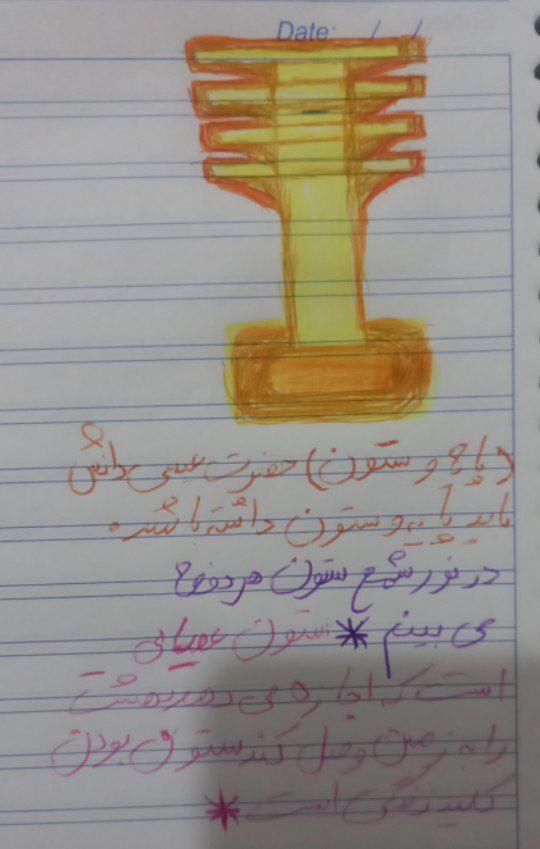 Date: / /
(تاج و ستون) حضرت عیسی دانش
باید پایه و ستون داشته باشد.
در نور شمع ستون هر دفعه
می بینم * ستون عصبانی
است که اجازه می دهد بهشت
را به زمین وصل کند ستون بودن
کلید است *